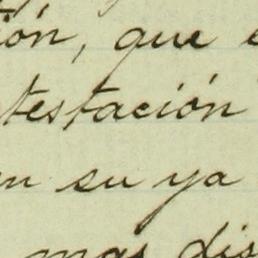 ión, que e
testación
n su ya
mas dis